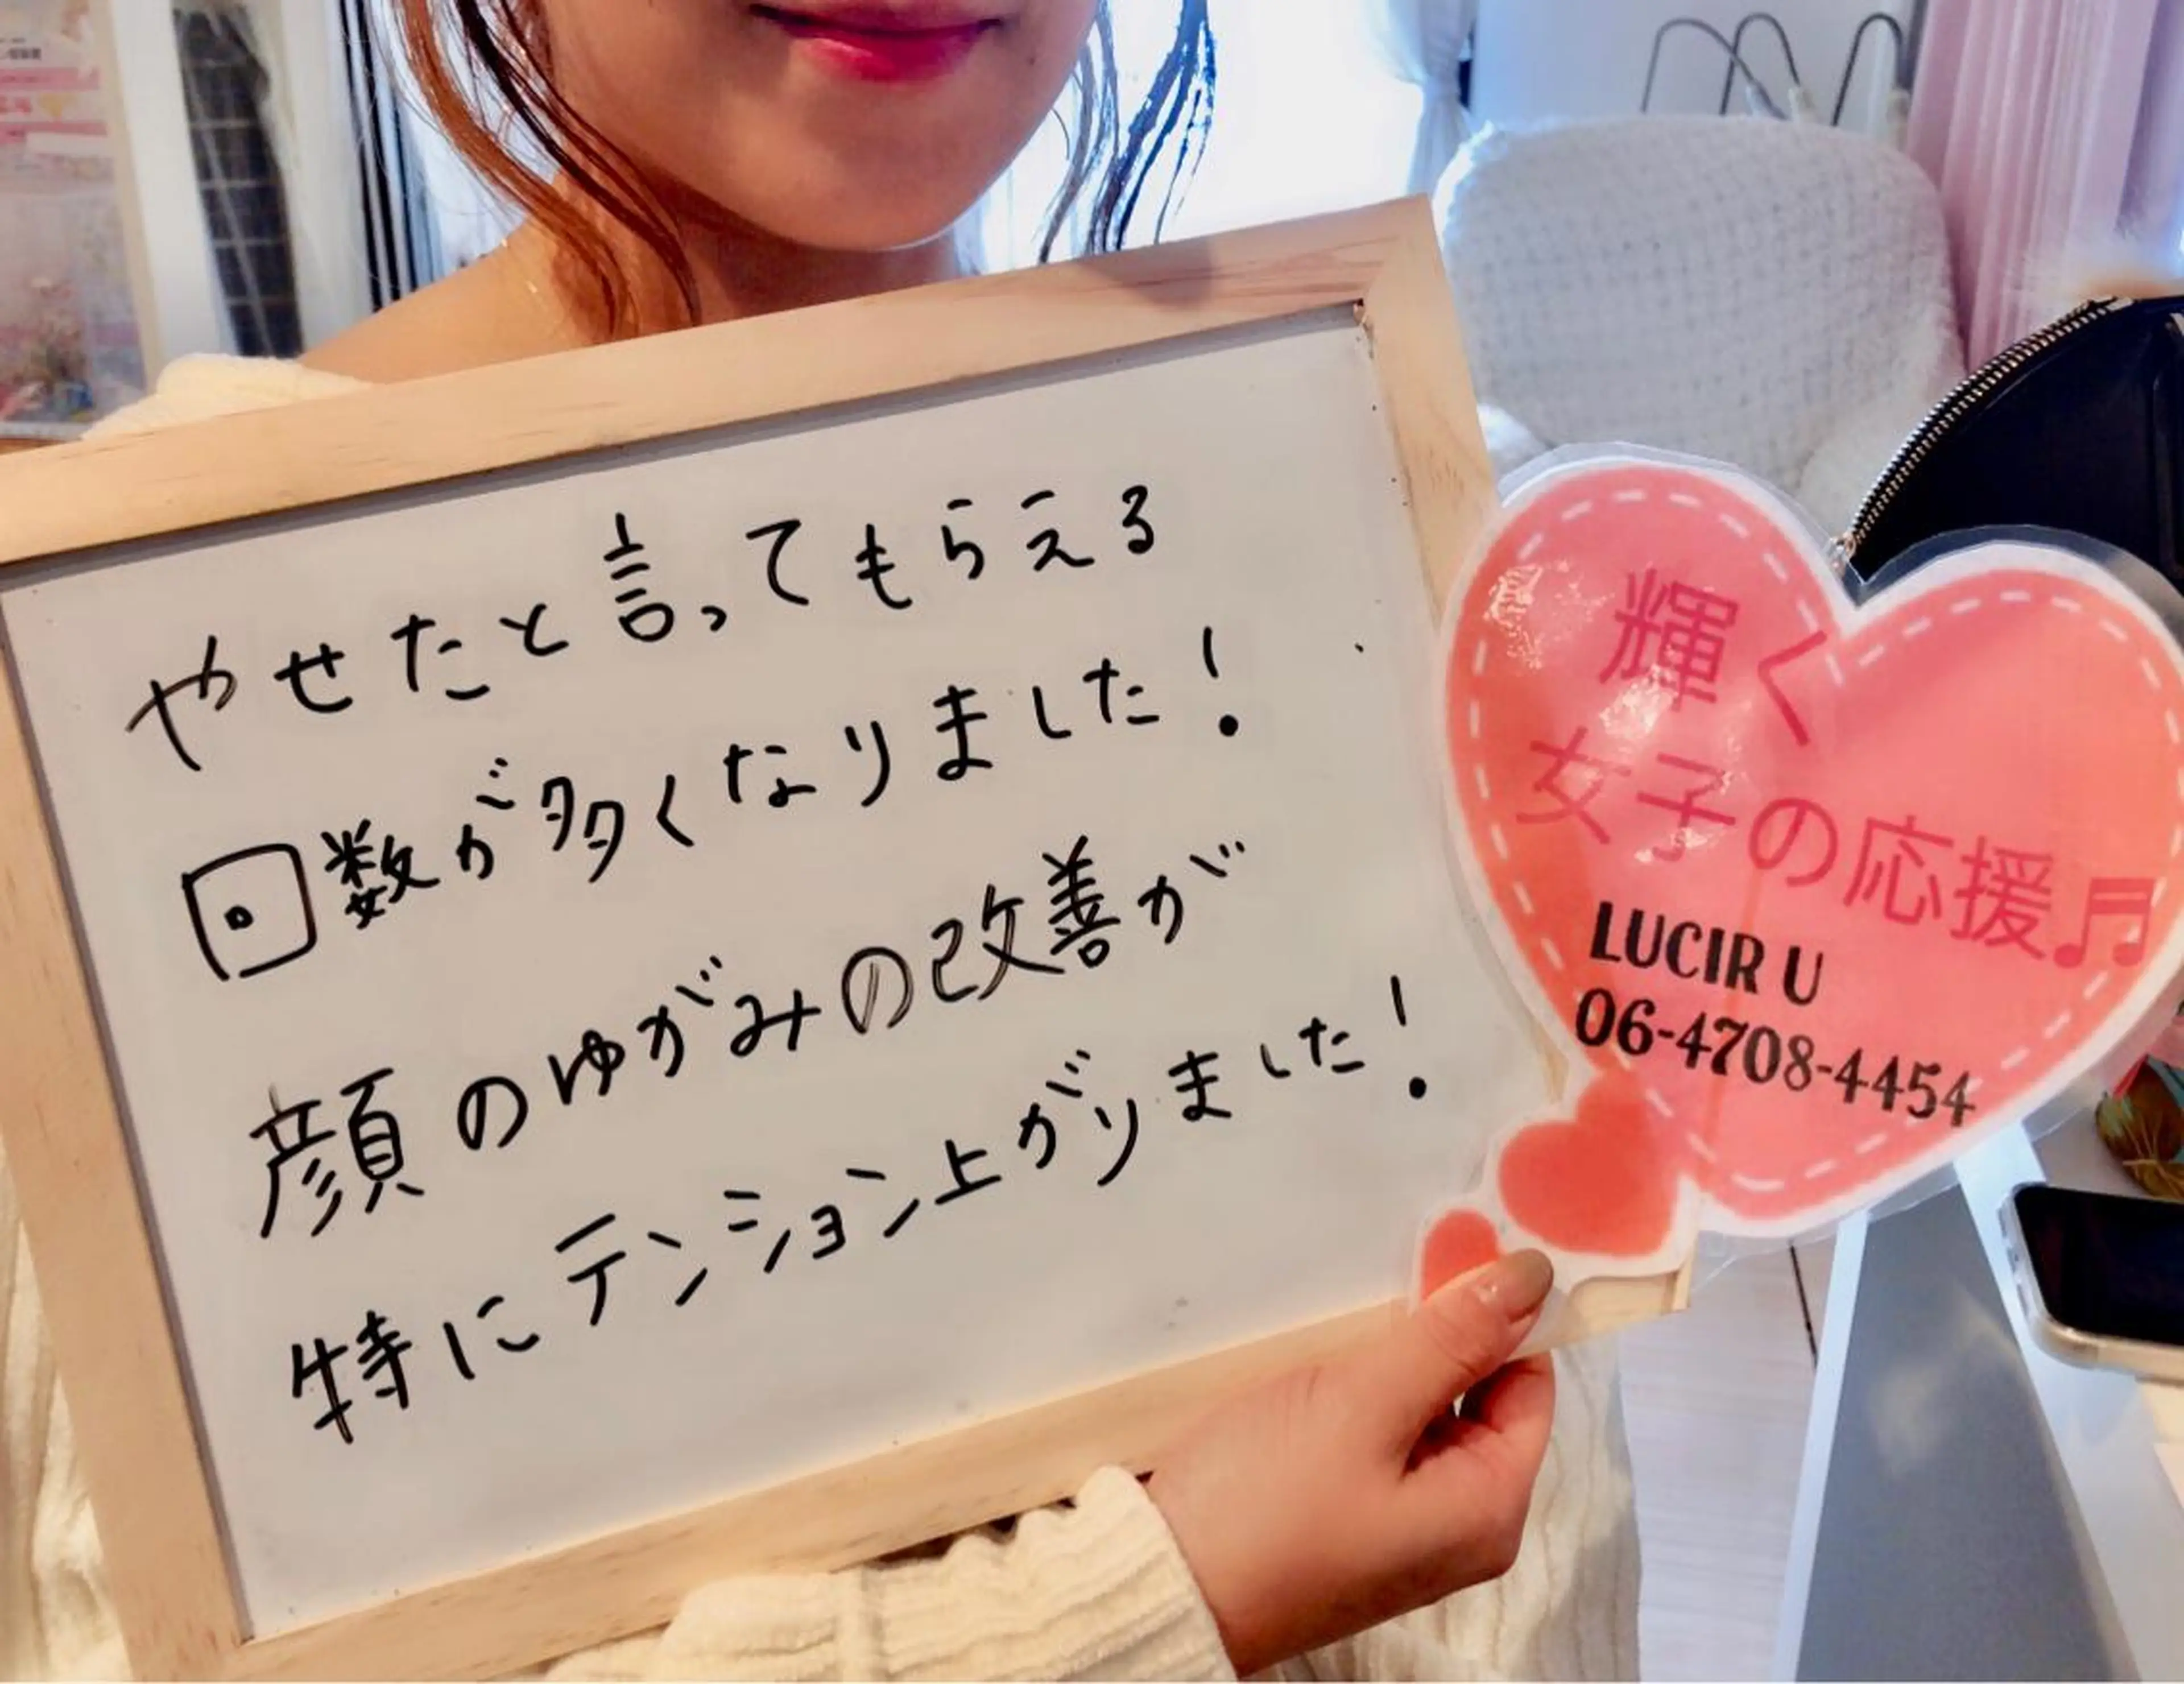 やせたと言ってもらえる
回数が多くなりました！
顔のゆがみの改善が
特にテンション上がりました！
輝く
女子の応援♬
LUCIR U
06-4708-4454